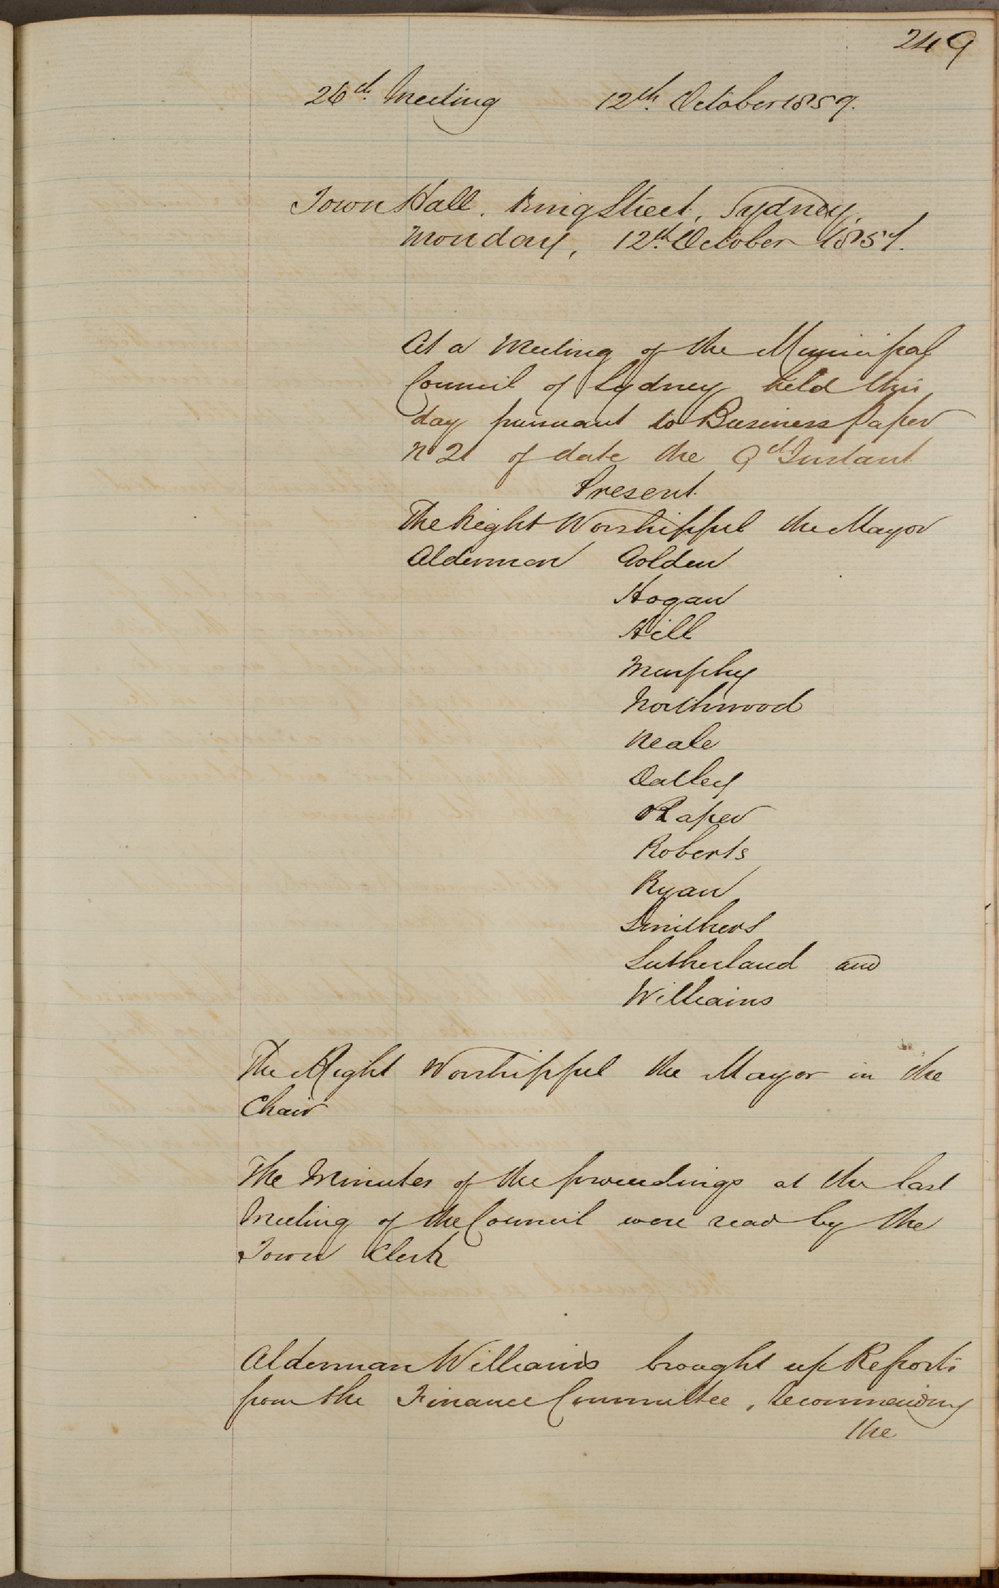 249
26th Meeting 12th October 1857.
Town Hall. King Street, Sydney,
Monday, 12th October 1857.
At a Meeting of the Municipal
Council of Sydney held this
day pursuant to Business Paper
No 21 of date the 9th Instant
Present
The Right Worshipful the Mayor
Alderman Golden
Hogan
Hill
Murphy
Northwood
Neale
Oatley
Raper
Roberts
Ryan
Smithers
Sutherland and
Williams
The Right Worshipful the Mayor in the
Chair
The Minutes of the proceedings at the last
Meeting of the Council were read by the
Town Clerk
Alderman Williams brought up Reports
from the Finance Committee, recommending
the